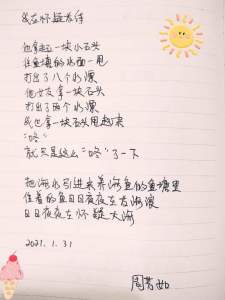 我在怀疑着你
他拿起一块小石头
往鱼塘的水面一甩
打出了八个水漂
他女友拿一块石头
打出了两个水漂
我也拿一块石头甩起来
“咚”
就只是这么“咚”了一下
把海水引进来养海鱼的鱼塘里
住着的鱼日日夜夜在
日日夜夜在怀疑大海
2021.1.31
周芳如